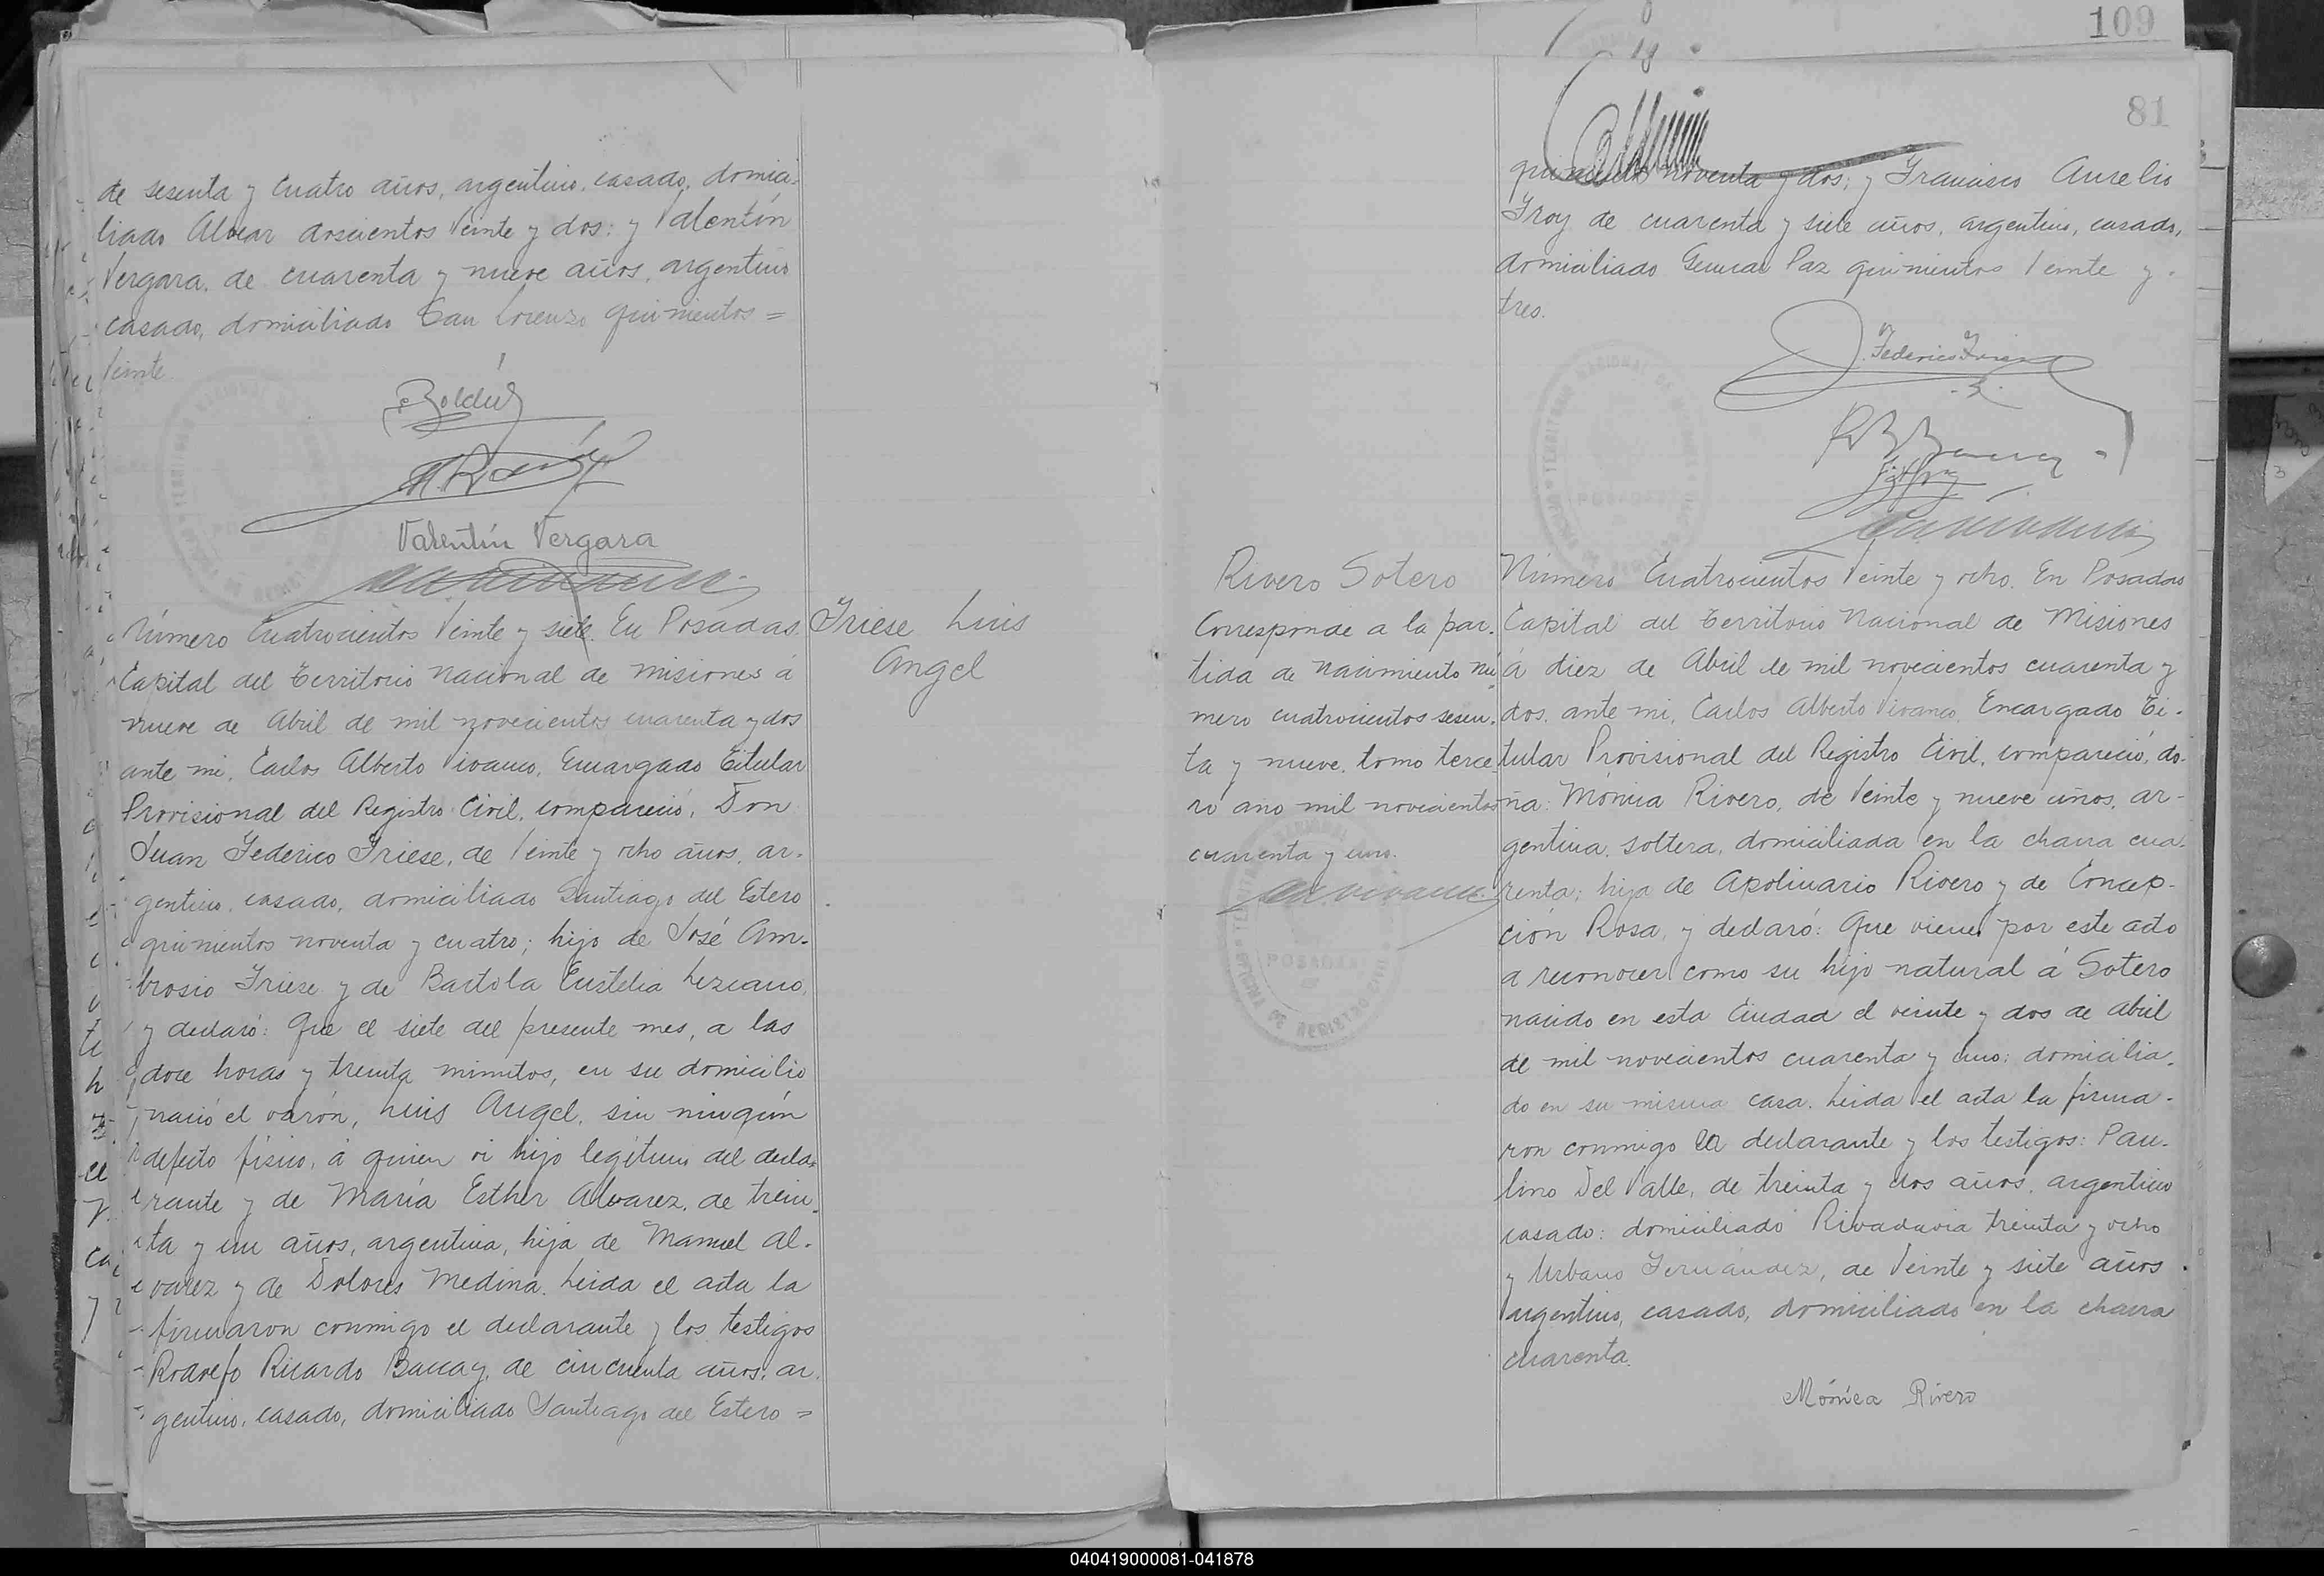 de sesenta y cuatro años, argentino, casado, domici-
liado Alvear doscientos veinte y dos: y Valentín
Vergara, de cuarenta y nueve años, argentino
casado, domiciliado San Lorenzo quinientos =
veinte
Valentín Vergara
Número Cuatrocientos Veinte y siete. En Posadas
Capital del Territorio Nacional de Misiones á
nueve de Abril de mil novecientos cuarenta y dos
ante mi, Carlos Alberto Vivanco, Encargado Titular
Provisional del Registro Civil, compareció, Don
Juan Federico Friese, de Veinte y ocho años, ar-
gentino, casado, domiciliado Santiago del Estero
quinientos noventa y cuatro; hijo de José Am-
brosio Friese y de Bartola Eustelia Lezcano,
y declaró: Que el siete del presente mes, a las
doce horas y treinta minutos, en su domicilio
nació el varón, Luis Angel, sin ningún
defecto físico, á quien vi hijo legítimo del decla-
rante y de María Esther Alvarez, de trein-
ta y un años, argentina, hija de Manuel Al-
varez y de Dolores Medina. Leida el acta la
firmaron conmigo el declarante y los testigos
Rodolfo Ricardo Baccay, de cincuenta años, ar-
gentino, casado, domiciliado Santiago del Estero =
Friese Luis
Angel
109
81
quinientos noventa y dos; y Francisco Aurelio
Froy de cuarenta y siete años, argentino, casado,
domiciliado General Paz quinientos veinte y
tres.
J. Federico Friese
Rivero Sotero
Corresponde a la par-
tida de nacimiento nú-
mero cuatrocientos sesen-
ta y nueve, tomo terce-
ro año mil novecientos
cuarenta y uno.
POSADAS
Número Cuatrocientos Veinte y ocho. En Posadas
Capital del Territorio Nacional de Misiones
á diez de Abril de mil novecientos cuarenta y
dos, ante mi, Carlos Alberto Vivanco, Encargado Ti-
tular Provisional del Registro Civil, compareció, do-
ña: Mónica Rivero, de Veinte y nueve años, ar-
gentina, soltera, domiciliada en la chacra cua-
renta; hija de Apolinario Rivero y de Concep-
ción Rosa, y declaró: Que viene por este acto
a reconocer como su hijo natural á Sotero
nacido en esta Ciudad el veinte y dos de abril
de mil novecientos cuarenta y uno; domicilia-
do en su misma casa. Leida el acta la firma-
ron conmigo la declarante y los testigos: Pau-
lino Del Valle, de treinta y dos años, argentino
casado: domiciliado Rivadavia treinta y ocho
y Urbano Fernández, de Veinte y siete años
argentino, casado, domiciliado en la chacra
cuarenta.
Mónica Rivero
040419000081-041878